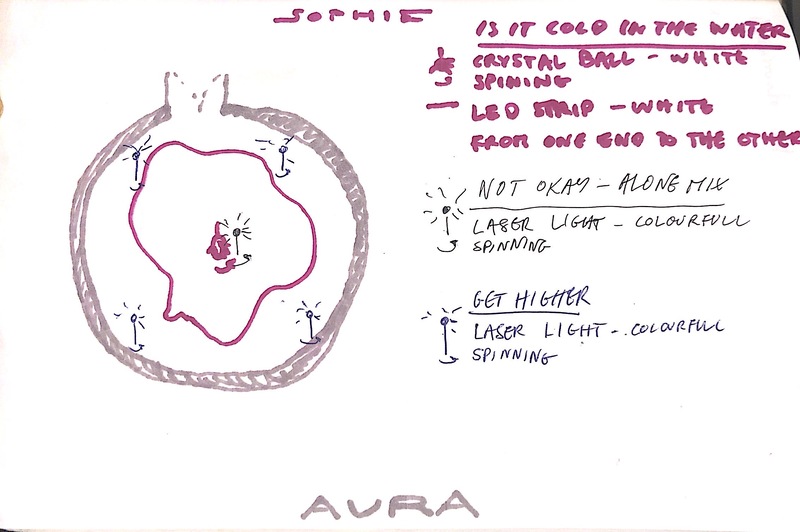 SOPHIE
IS IT COLD IN THE WATER
CRYSTAL BALL - WHITE
SPINING
LED STRIP - WHITE
FROM ONE END TO THE OTHER
NOT OKAY - ALONE MIX
LASER LIGHT - COLOURFULL
SPINNING
GET HIGHER
LASER LIGHT - COLOURFULL
SPINNING
AURA